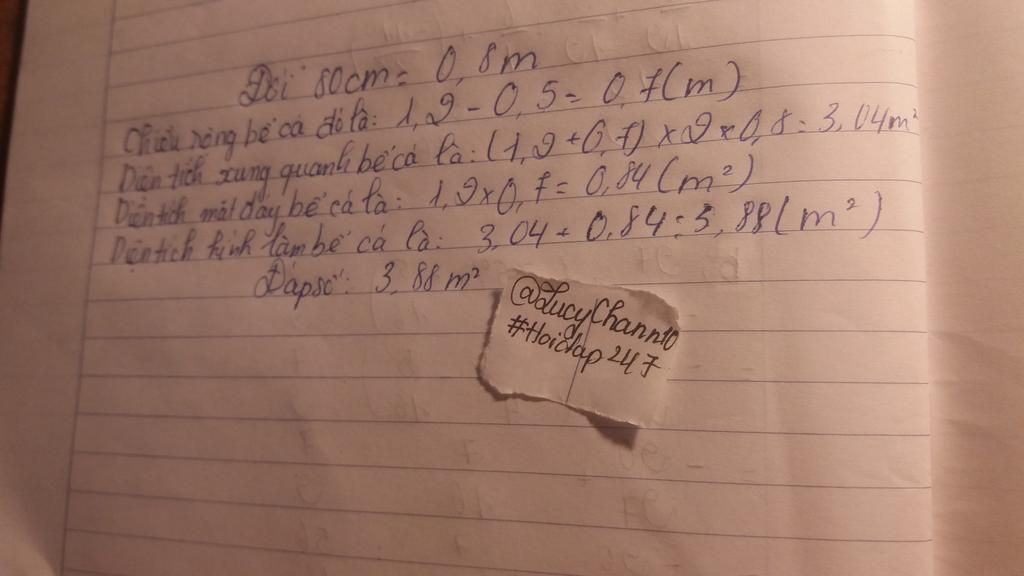 Đổi 80cm = 0,8m
Chiều rộng bể cá đó là: 1,2 - 0,5 = 0,7(m)
Diện tích xung quanh bể cá là: (1,2 + 0,7) x 2 x 0,8 = 3,04m²
Diện tích mặt đáy bể cá là: 1,2 x 0,7 = 0,84 (m²)
Diện tích kính làm bể cá là: 3,04 + 0,84 = 3,88 (m²)
Đáp số: 3,88m²
@LucyChann10
#Hoidap247